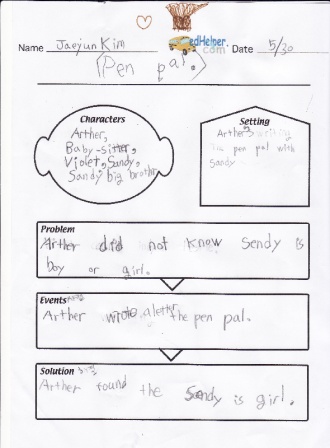 Name Jaeyun Kim edHelper.com Date 5/30
Pen pal.
Characters
Arther,
Baby-sitter,
Violet, Sandy,
Sandy big brother
Setting
Arther writing
pen pal with
Sandy
Problem
Arther did not know Sendy is
boy or girl.
Events
Arther wrote a letter the pen pal.
Solution
Arther found the Sendy is girl.